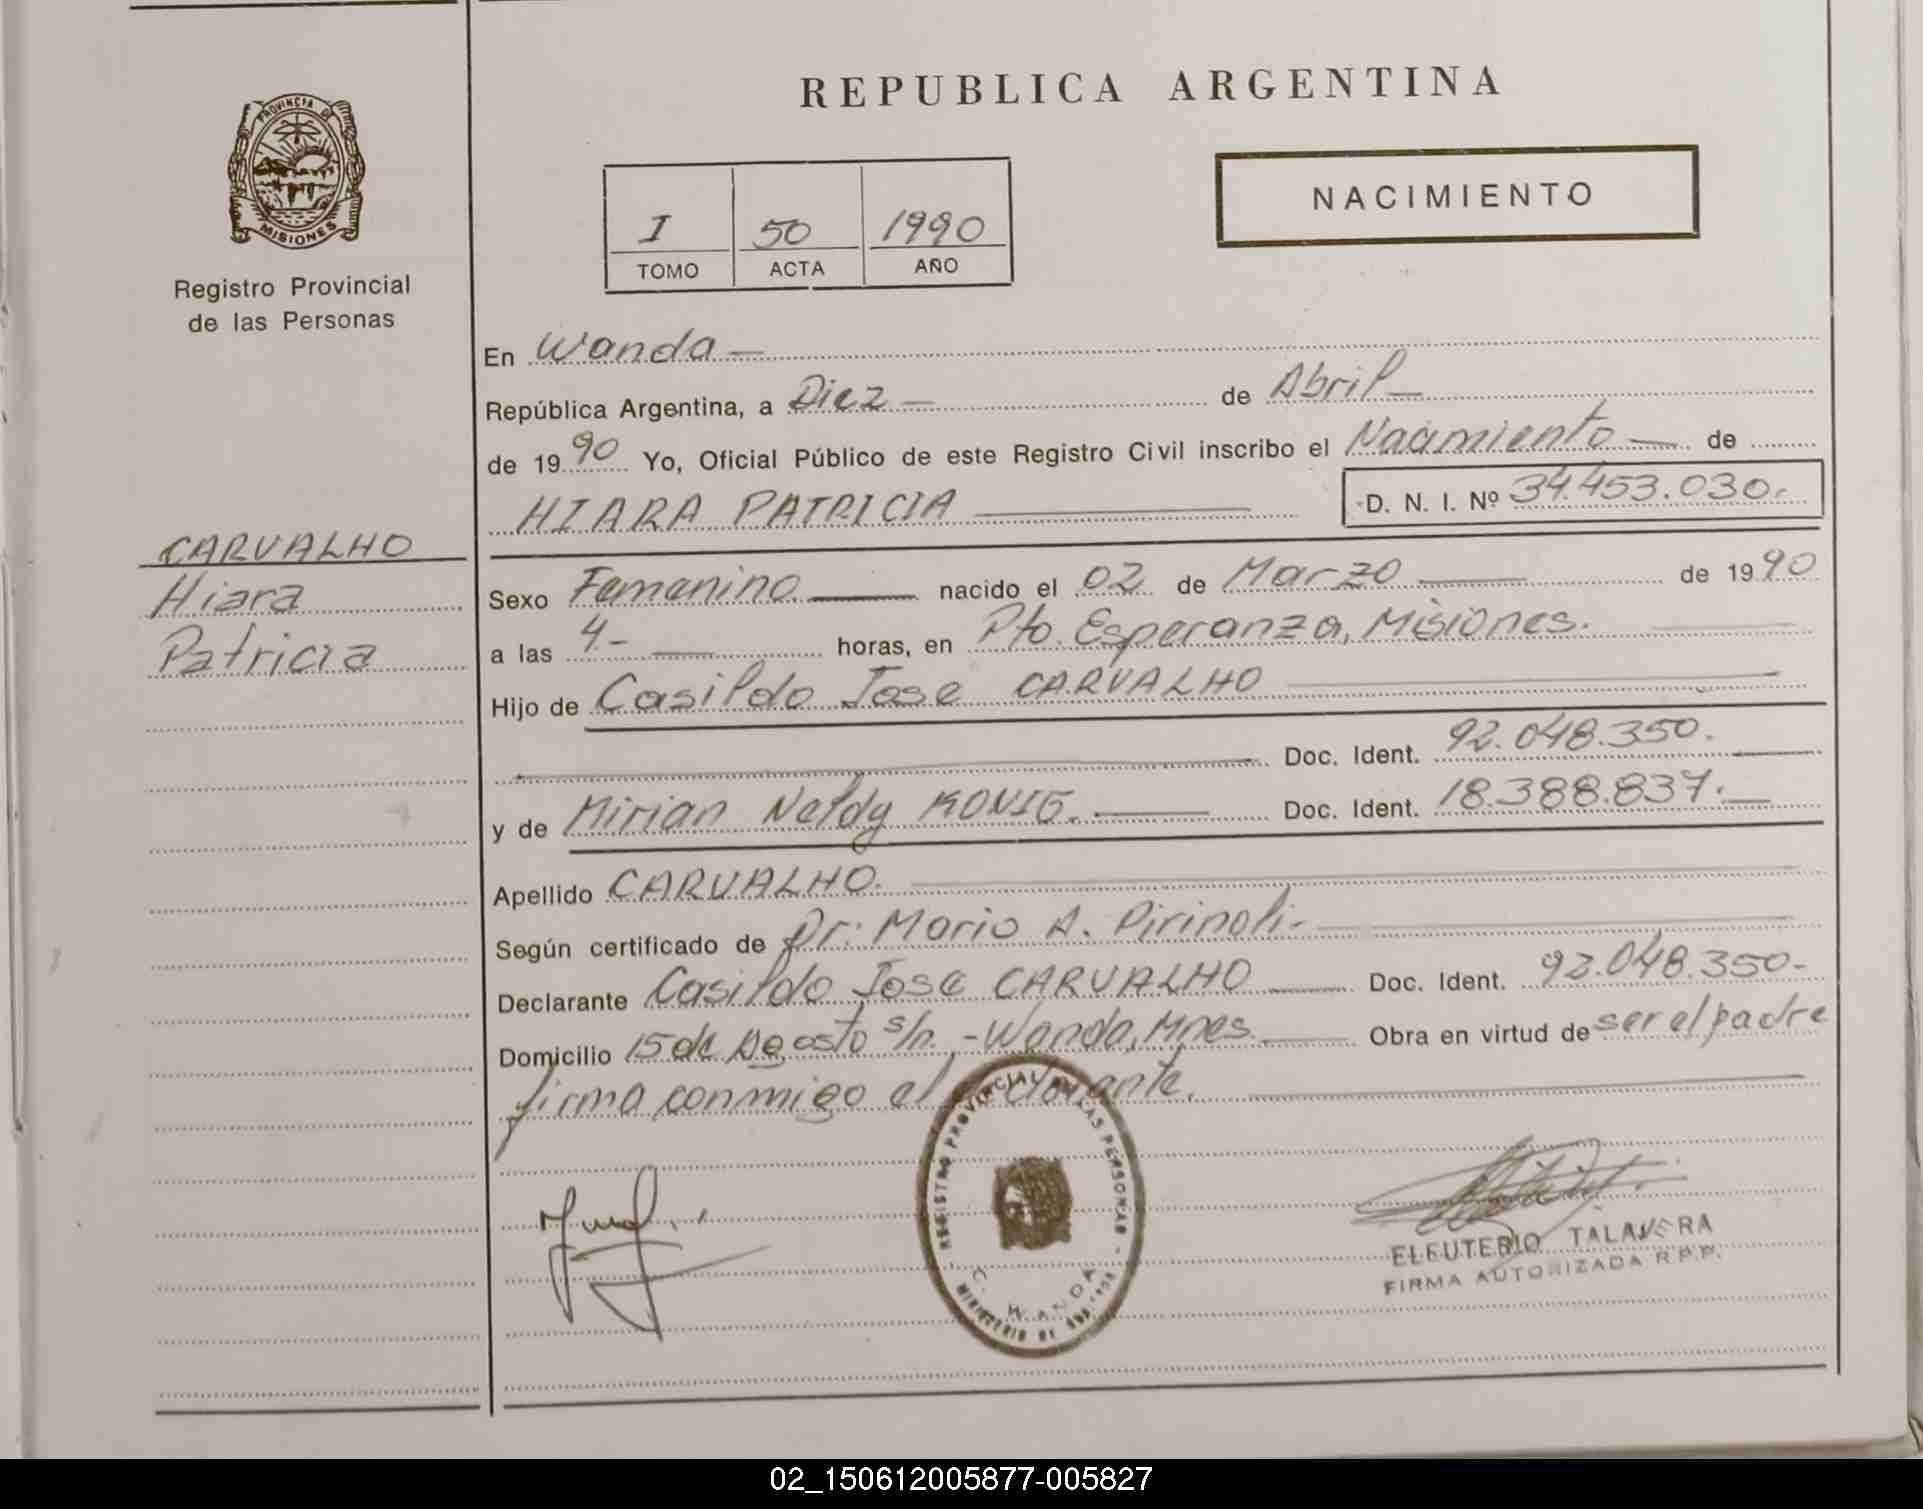 REPUBLICA ARGENTINA
PROVINCIA DE
MISIONES
Registro Provincial
de las Personas
I 50 1990
TOMO ACTA AÑO
NACIMIENTO
En Wanda
República Argentina, a Diez de Abril
de 1990 Yo, Oficial Público de este Registro Civil inscribo el Nacimiento de
HIARA PATRICIA D. N. I. Nº 34.453.030.
CARVALHO
Hiara
Patricia
Sexo Femenino nacido el 02 de Marzo de 1990
a las 4.- horas, en Pto. Esperanza, Misiones.
Hijo de Casildo Jose CARVALHO
Doc. Ident. 92.048.350.
y de Mirian Neldy KONIG. Doc. Ident. 18.388.837.
Apellido CARVALHO.
Según certificado de Dr. Mario A. Pirinoli-
Declarante Casildo Jose CARVALHO Doc. Ident. 92.048.350-
Domicilio 15 de Agosto s/n.-Wanda, Mnes. Obra en virtud de ser el padre
firma conmigo el declarante.
REGISTRO PROVINCIAL DE LAS PERSONAS
WANDA
MINISTERIO DE
ELEUTERIO TALAVERA
FIRMA AUTORIZADA R.P.P.
02_150612005877-005827